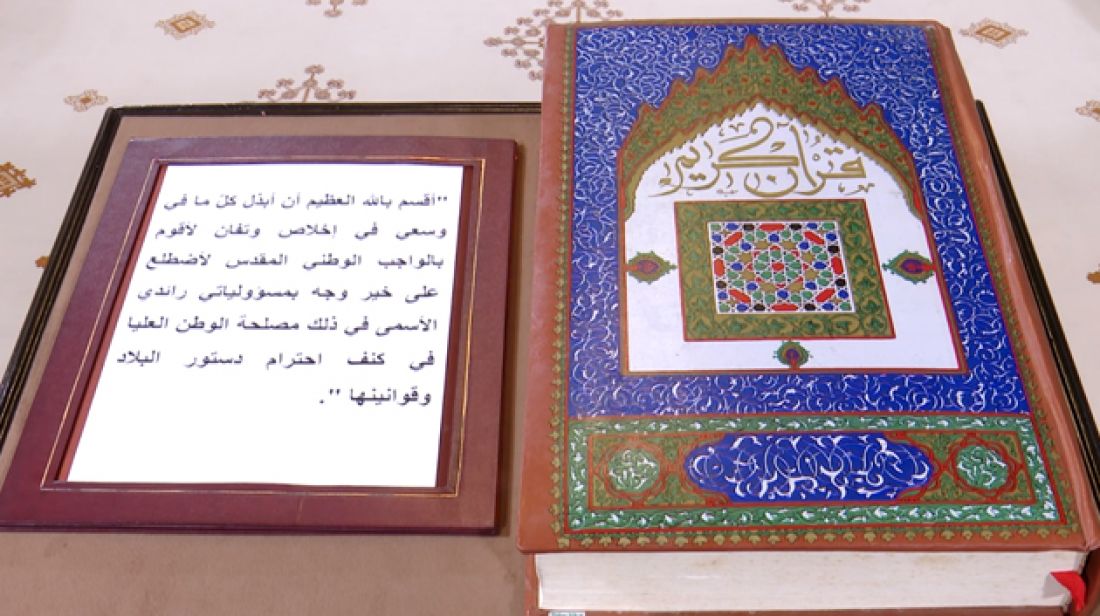 "أقسم بالله العظيم أن أبذل كلّ ما في
وسعي في إخلاص وتفان لأقوم
بالواجب الوطني المقدس لأضطلع
على خير وجه بمسؤولياتي رائدي
الأسمى في ذلك مصلحة الوطن العليا
في كنف احترام دستور البلاد
وقوانينها".
قرآن كريم